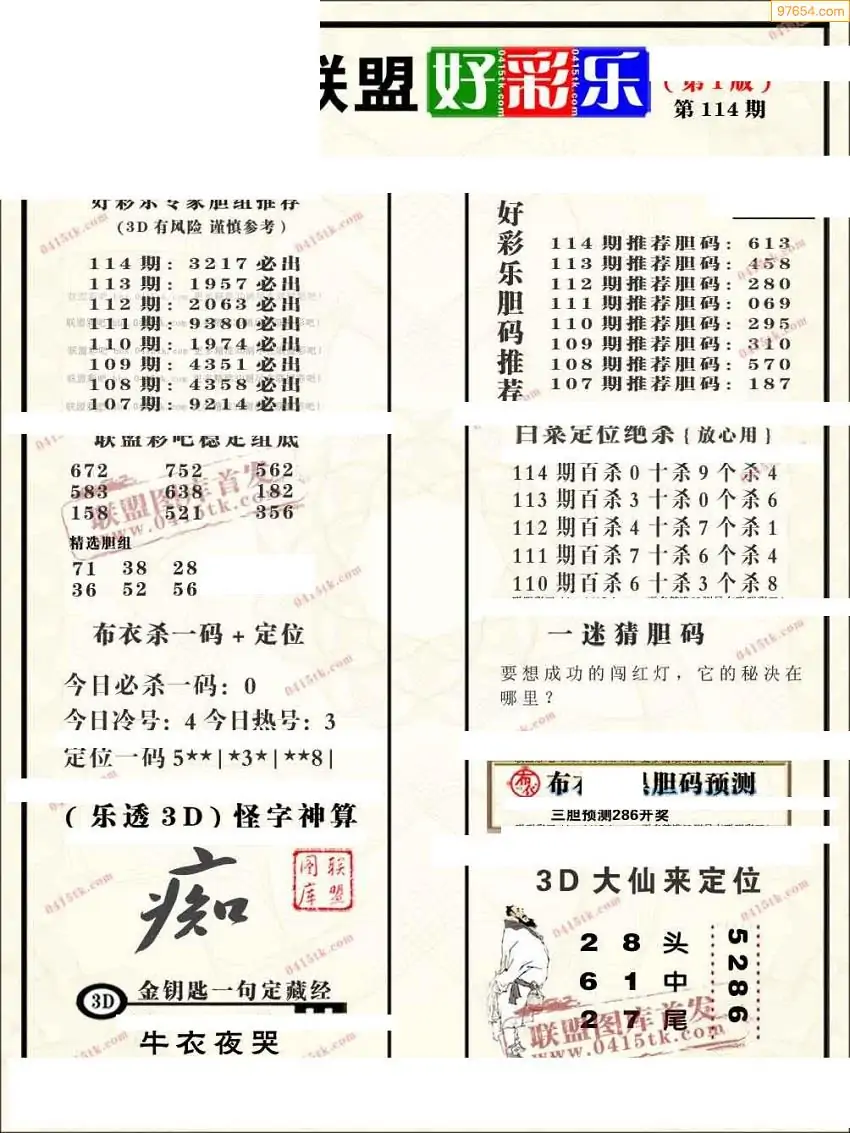 97654.com
联盟好彩乐
(第1版)
第114期
好彩乐专家胆组推荐
(3D有风险 谨慎参考)
114期: 3217必出
113期: 1957必出
112期: 2063必出
111期: 9380必出
110期: 1974必出
109期: 4351必出
108期: 4358必出
107期: 9214必出
联盟彩吧稳定组底
672 752 562
583 638 182
158 521 356
精选胆组
71 38 28
36 52 56
布衣杀一码+定位
今日必杀一码: 0
今日冷号: 4 今日热号: 3
定位一码 5**|*3*|**8|
(乐透3D)怪字神算
痴
联盟图库
3D 金钥匙一句定藏经
牛衣夜哭
好彩乐胆码推荐
114期推荐胆码: 613
113期推荐胆码: 458
112期推荐胆码: 280
111期推荐胆码: 069
110期推荐胆码: 295
109期推荐胆码: 310
108期推荐胆码: 570
107期推荐胆码: 187
白菜定位绝杀{放心用}
114期百杀0十杀9个杀4
113期百杀3十杀0个杀6
112期百杀4十杀7个杀1
111期百杀7十杀6个杀4
110期百杀6十杀3个杀8
一迷猜胆码
要想成功的闯红灯，它的秘决在
哪里？
布 胆码预测
三胆预测286开奖
3D大仙来定位
2 8 头
6 1 中
2 7 尾
5286
联盟图库首发
www.0415tk.com